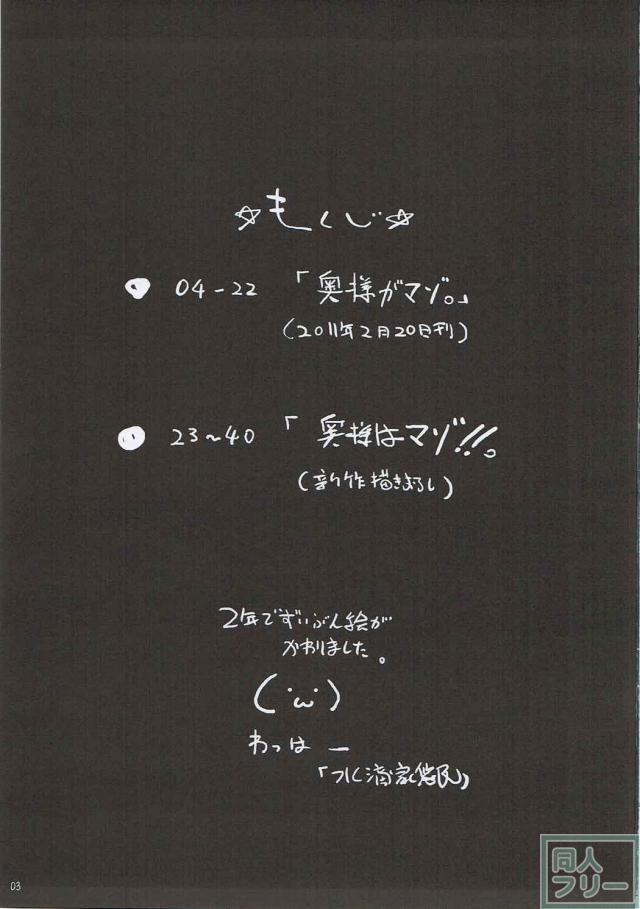 ☆もくじ☆
04-22 「奥様がマゾ。」
(2011年2月20日刊)
23~40 「奥様はマゾ!!。
(新作描きおろし)
2年でずいぶん絵が
かわりました。
(・ω・)
わっはー
03
同人
フリー